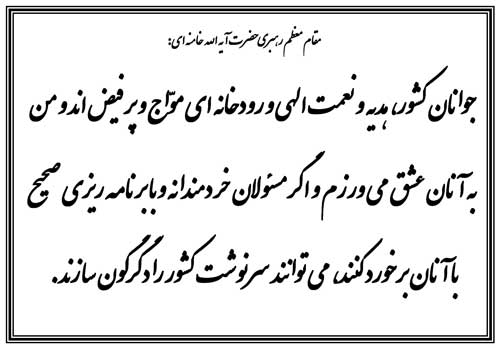 مقام معظم رهبری حضرت آیه الله خامنه ای:
جوانان کشور، هدیه و نعمت الهی و رودخانه ای موّاج و پر فیض اند و من
به آنان عشق می ورزم و اگر مسئولان خردمندانه و با برنامه ریزی صحیح
با آنان برخورد کنند، می توانند سرنوشت کشور را دگرگون سازند.